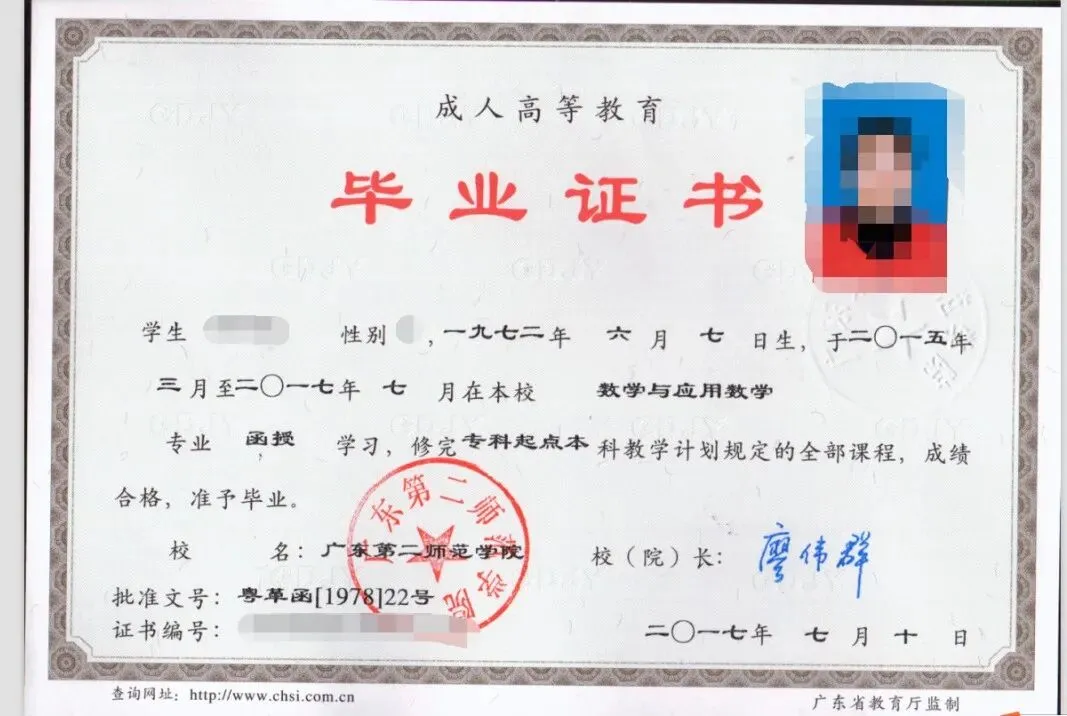 成人高等教育
毕业证书
学生 性别 ,一九七二年 六 月 七 日生，于二〇一五年
三月至二〇一七年 七 月在本校 数学与应用数学
专业 函授 学习，修完专科起点本科教学计划规定的全部课程，成绩
合格，准予毕业。
校 名：广东第二师范学院
校（院）长：廖伟群
批准文号：粤革函[1978]22号
证书编号：
二〇一七年 七 月 十 日
广东第二师范学院
查询网址：http://www.chsi.com.cn
广东省教育厅监制